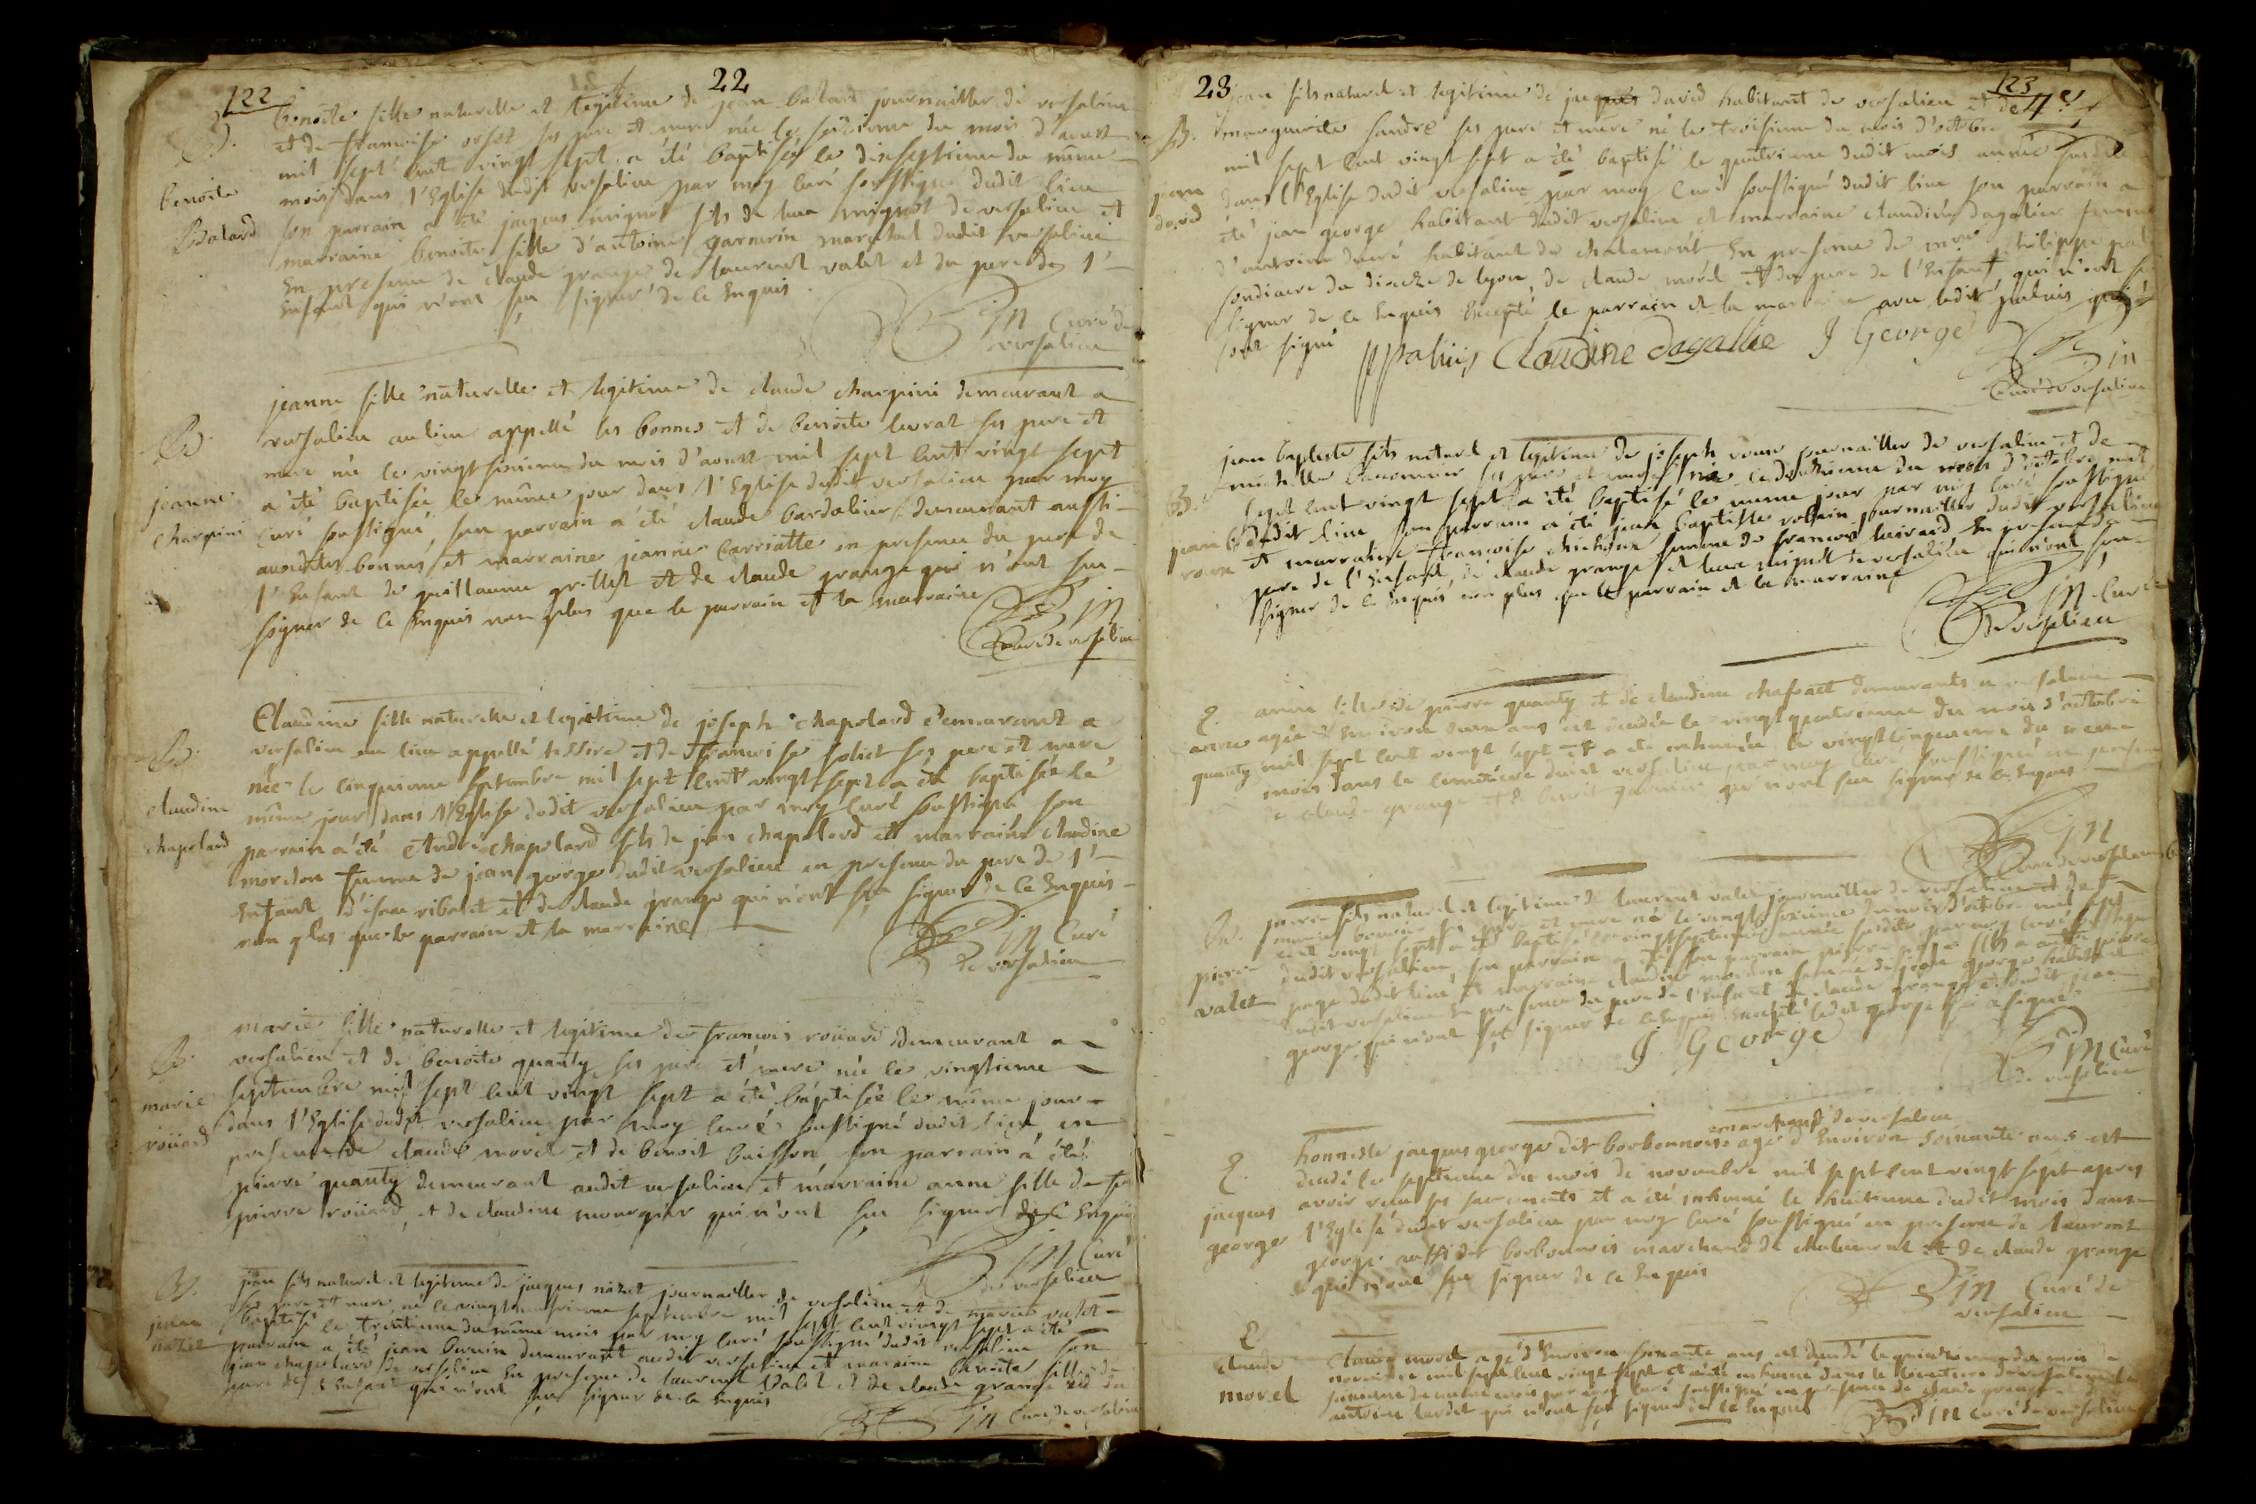 122
22
B.
benoite
Batard
benoite fille naturelle et legitime de jean batard journaillier de versalieu
et de francoise orset ses pere et mere née le seizieme du mois d'aoust
mil sept cent vingt sept a été baptisée le dixseptieme du même
mois dans l'Eglise dudit versalieu par moy curé soussigné dudit lieu
son parrain a été jaques mignot fils de luca mignot de versalieu et
marraine benoite fille d'antoine garnirin marechal dudit versalieu
En presence de claude grange de laurent valet et du pere de l'
Enfant qui n'ont sçu signer de ce Enquis
JM Curé de
versalieu
B.
jeanne
charpini
jeanne fille naturelle et legitime de claude charpini demeurant a
versalieu au lieu appellé les bonnes et de benoite leurat ses pere et
mere née le vingt sixieme du mois d'aoust mil sept cent vingt sept
a été baptisée le même jour dans l'Eglise dudit versalieu par moy
Curé soussigné, son parrain a été claude bardolieu demeurant aussi
auxdites bonnes et marraine jeanne Carriatte en presence du pere de
l'Enfant de guillaume grillet et de claude grange qui n'ont sçu
signer de ce Enquis non plus que le parrain et la marraine
JM
Curé de versalieu
B.
claudine
chapolard
Claudine fille naturelle et legitime de joseph chapolard demeurant a
versalieu au lieu appellé tessere et de francoise soliet ses pere et mere
née le cinquieme septembre mil sept cent vingt sept a été baptisée le
même jour dans l'Eglise dudit versalieu par moy curé soussigné son
parrain a été André chapolard fils de jean chapolard et marraine claudine
mordon femme de jean george dudit versalieu en presence du pere de l'
Enfant d'isaac ribolet et de claude grange qui n'ont sçu signer de ce Enquis
non plus que le parrain et la marraine
JM Curé
de versalieu
B.
marie
roüard
marie fille naturelle et legitime de francois roüard demeurant a
versalieu et de benoite quanty ses pere et mere née le vingtieme
septembre mil sept cent vingt sept a été baptisée le même jour
dans l'Eglise dudit versalieu par moy curé soussigné dudit lieu en
presence de claude morel et de benoit buisson son parrain a été
pierre quanty demeurant audit versalieu et marraine anne fille de
pierre roüard, et de claudine mongier qui n'ont sçu signer de ce Enquis
JM Curé
de versalieu
B.
jean
nizet
jean fils naturel et legitime de jacques nizet journaillier de versalieu et de marie valet
ses pere et mere né le vingt neuvieme septembre mil sept cent vingt sept a été
baptisé le trentieme du même mois par moy curé soussigné dudit versalieu son
parrain a été jean burnin demeurant audit versalieu et maraine benoite fille de
jean chapolard de versalieu En presence de laurent valet et de claude grange et du
pere de l'Enfant qui n'ont sçu signer de ce Enquis
JM Curé de versalieu
23
123
B.
jean
david
jean fils naturel et legitime de jacques david habitant de versalieu et de
marguerite sandre ses pere et mere né le troisieme du mois d'octobre
mil sept cent vingt sept a été baptisé le quatrieme dudit mois année susdite
dans l'Eglise dudit versalieu par moy Curé soussigné dudit lieu son parrain a
été jean george habitant dudit versalieu et marraine claudine dagalier femme
d'antoine habitant de chalamont En presence de philippe
du dioceze de lyon, de claude morel et du pere de l'Enfant, qui n'ont sçu
signer de ce Enquis Excepté le parrain et la marraine avec ledit paluis qui
ont signé
PPaluis Claudine dagallie J George
JM
Curé de versalieu
B.
jean b
roux
jean baptiste fils naturel et legitime de joseph roux journaillier de versalieu et de
michelle ses pere et mere né le douzieme du mois d'octobre mil
sept cent vingt sept a été baptisé le même jour par moy curé soussigné
dudit lieu son parrain a été jean baptiste journaillier dudit versalieu
et marraine francoise femme de francois En presence du
pere de l'Enfant, de claude grange et luca mignot de versalieu qui n'ont sçu
signer de ce Enquis non plus que le parrain et la marraine
JM Curé
de versalieu
E.
anne
quanty
anne fille de pierre quanty et de claudine demeurants a versalieu
agée d'Environ ans est decedée le vingt quatrieme du mois d'octobre
mil sept cent vingt sept et a été inhumée le vingtcinquieme du même
mois dans le cimetiere dudit versalieu par moy curé soussigné en presence
de claude grange et de benoit qui n'ont sçu signer de ce Enquis
JM
Curé de versalieu
B.
pierre
valet
pierre fils naturel et legitime de laurent valet journaillier de versalieu et de
marie ses pere et mere né le vingt sixieme du mois d'octobre mil sept
cent vingt sept a été baptisé le vingtseptieme année susdite par moy curé soussigné
dudit versalieu son parrain a été pierre
dudit lieu et marraine claudine mordon femme de jean george habitant
dudit versalieu En presence du pere de l'Enfant de claude grange et dudit jean
george qui n'ont sçu signer de ce Enquis Excepté ledit george qui a signé
J George
JM Curé
de versalieu
E.
jacques
george
marchand de versalieu
honneste jacques george dit borbonnois agé d'Environ soixante ans est
decedé le septieme du mois de novembre mil sept cent vingt sept apres
avoir receu ses sacrements et a été inhumé le huitieme dudit mois dans
l'Eglise dudit versalieu par moy Curé soussigné en presence de laurent
george aussi dit borbonnois marchand de chalamont et de claude grange
qui n'ont sçu signer de ce Enquis
JM Curé de
versalieu
E.
claude
morel
claude morel agé d'Environ soixante ans est decedé le quinzieme du mois de
novembre mil sept cent vingt sept et a été inhumé dans le cimetiere de versalieu le
seizieme du même mois par moy curé soussigné en presence de claude grange
antoine tardit qui n'ont sçu signer de ce Enquis
JM Curé de versalieu